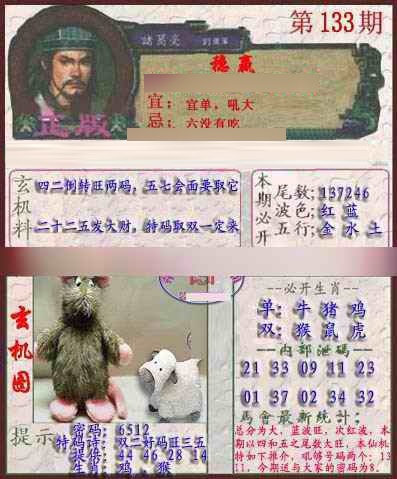 第133期
諸葛亮
稳赢
宜：宜单，吼大
忌：六没有吃
正版
玄机料
四二倒转旺两码，五七会面要取它
二十二五发大财，特码取双一定来
本期必开
尾数：137246
波色：红 蓝
五行：金 水 土
玄机图
--必开生肖--
单：牛 猪 鸡
双：猴 鼠 虎
--内部泄码--
21 33 09 11 23
01 37 02 34 32
马會最新统计：
总分为大，蓝波旺，次红波，本
期以四和五之尾数大旺，本仙机
特如下推介，吼够号码两个：13
11，今期送与大家的密码为8。
提示
密码：6512
特码诗：双二好码旺三五
提倍：44 46 28 14
生肖：鸡，猴